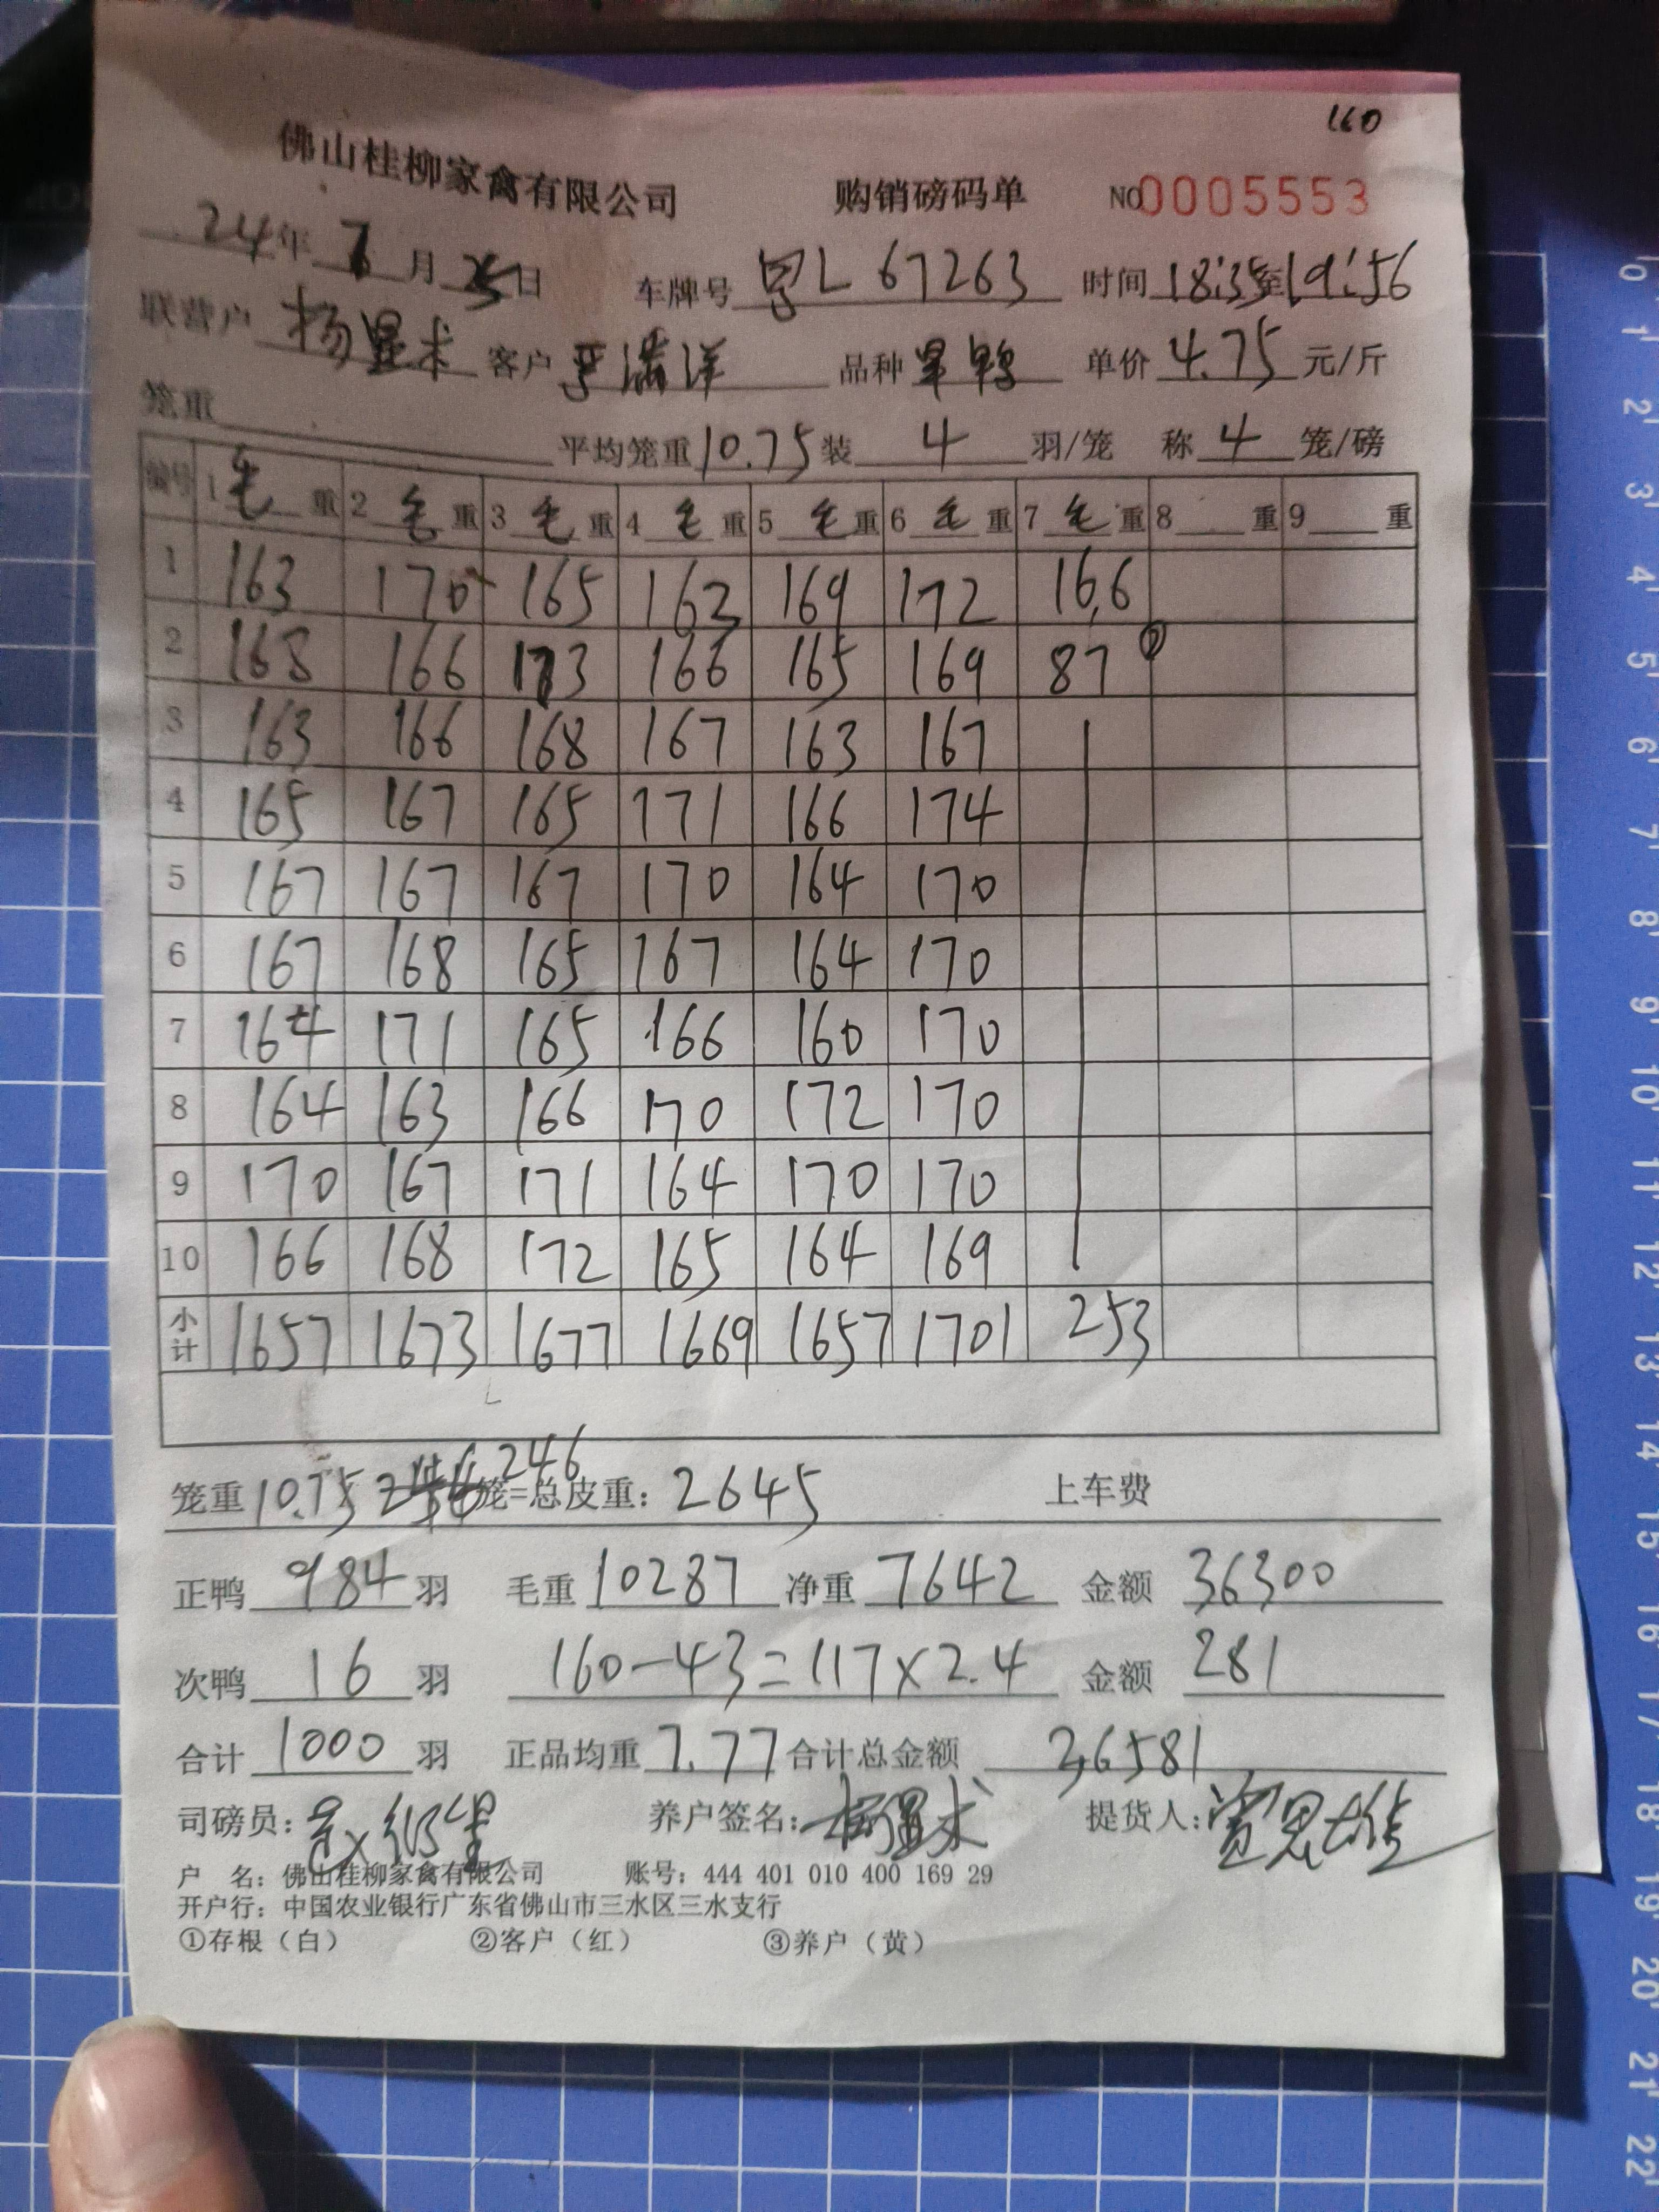 160
佛山桂柳家禽有限公司 购销磅码单 NO 0005553
24年 7月 25日 车牌号 粤L 67263 时间 18:35至19:56
联营户 杨显术 客户 严满洋 品种 旱鸭 单价 4.75 元/斤
笼重 平均笼重 10.75 装 4 羽/笼 称 4 笼/磅
编号 1 毛 重 2 毛 重 3 毛 重 4 毛 重 5 毛 重 6 毛 重 7 毛 重 8 重 9 重
1 163 170 165 162 169 172 166
2 168 166 173 166 165 169 87 ②
3 163 166 168 167 163 167
4 165 167 165 171 166 174
5 167 167 167 170 164 170
6 167 168 165 167 164 170
7 164 171 165 166 160 170
8 164 163 166 170 172 170
9 170 167 171 164 170 170
10 166 168 172 165 164 169
小计 1657 1673 1677 1669 1657 1701 253
笼重 10.75 246 笼=总皮重: 2645 上车费
正鸭 984 羽 毛重 10287 净重 7642 金额 36300
次鸭 16 羽 160-43=117×2.4 金额 281
合计 1000 羽 正品均重 7.77 合计总金额 36581
司磅员: 养户签名: 杨显术 提货人:
户 名: 佛山桂柳家禽有限公司 账号: 444 401 010 400 169 29
开户行: 中国农业银行广东省佛山市三水区三水支行
①存根（白） ②客户（红） ③养户（黄）
0 1' 2' 3' 4' 5' 6' 7' 8' 9' 10' 11' 12' 13' 14' 15' 16' 17' 18' 19' 20' 21' 22'